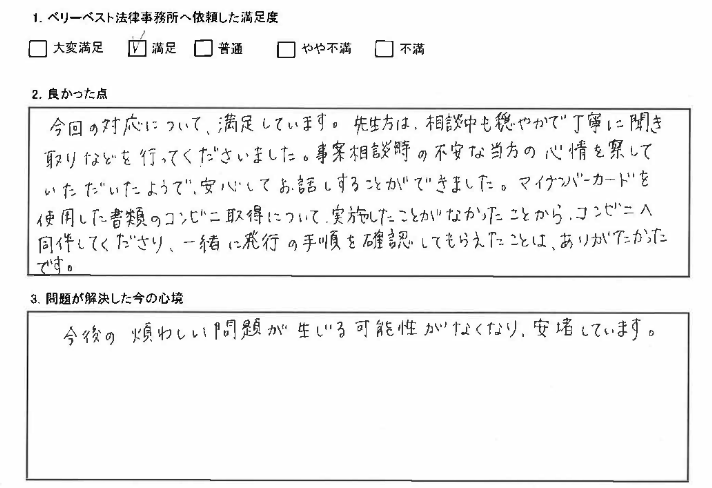 1. ベリーベスト法律事務所へ依頼した満足度
□ 大変満足 ☑ 満足 □ 普通 □ やや不満 □ 不満
2. 良かった点
今回の対応について、満足しています。先生方は、相談中も穏やかで丁寧に聞き
取りなどを行ってくださいました。事案相談時の不安な当方の心情を察して
いただいたようで、安心してお話しすることができました。マイナンバーカードを
使用した書類のコンビニ取得について、実施したことがなかったことから、コンビニへ
同伴してくださり、一緒に発行の手順を確認してもらえたことは、ありがたかった
です。
3. 問題が解決した今の心境
今後の煩わしい問題が生じる可能性がなくなり、安堵しています。